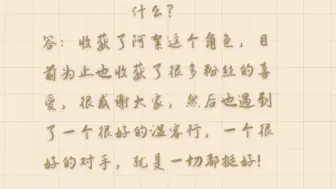 什么？
答：收获了阿絮这个角色，目
前为止也收获了很多粉丝的喜
爱，很感谢大家，然后也遇到
了一个很好的温客行，一个很
好的对手，就是一切都挺好！